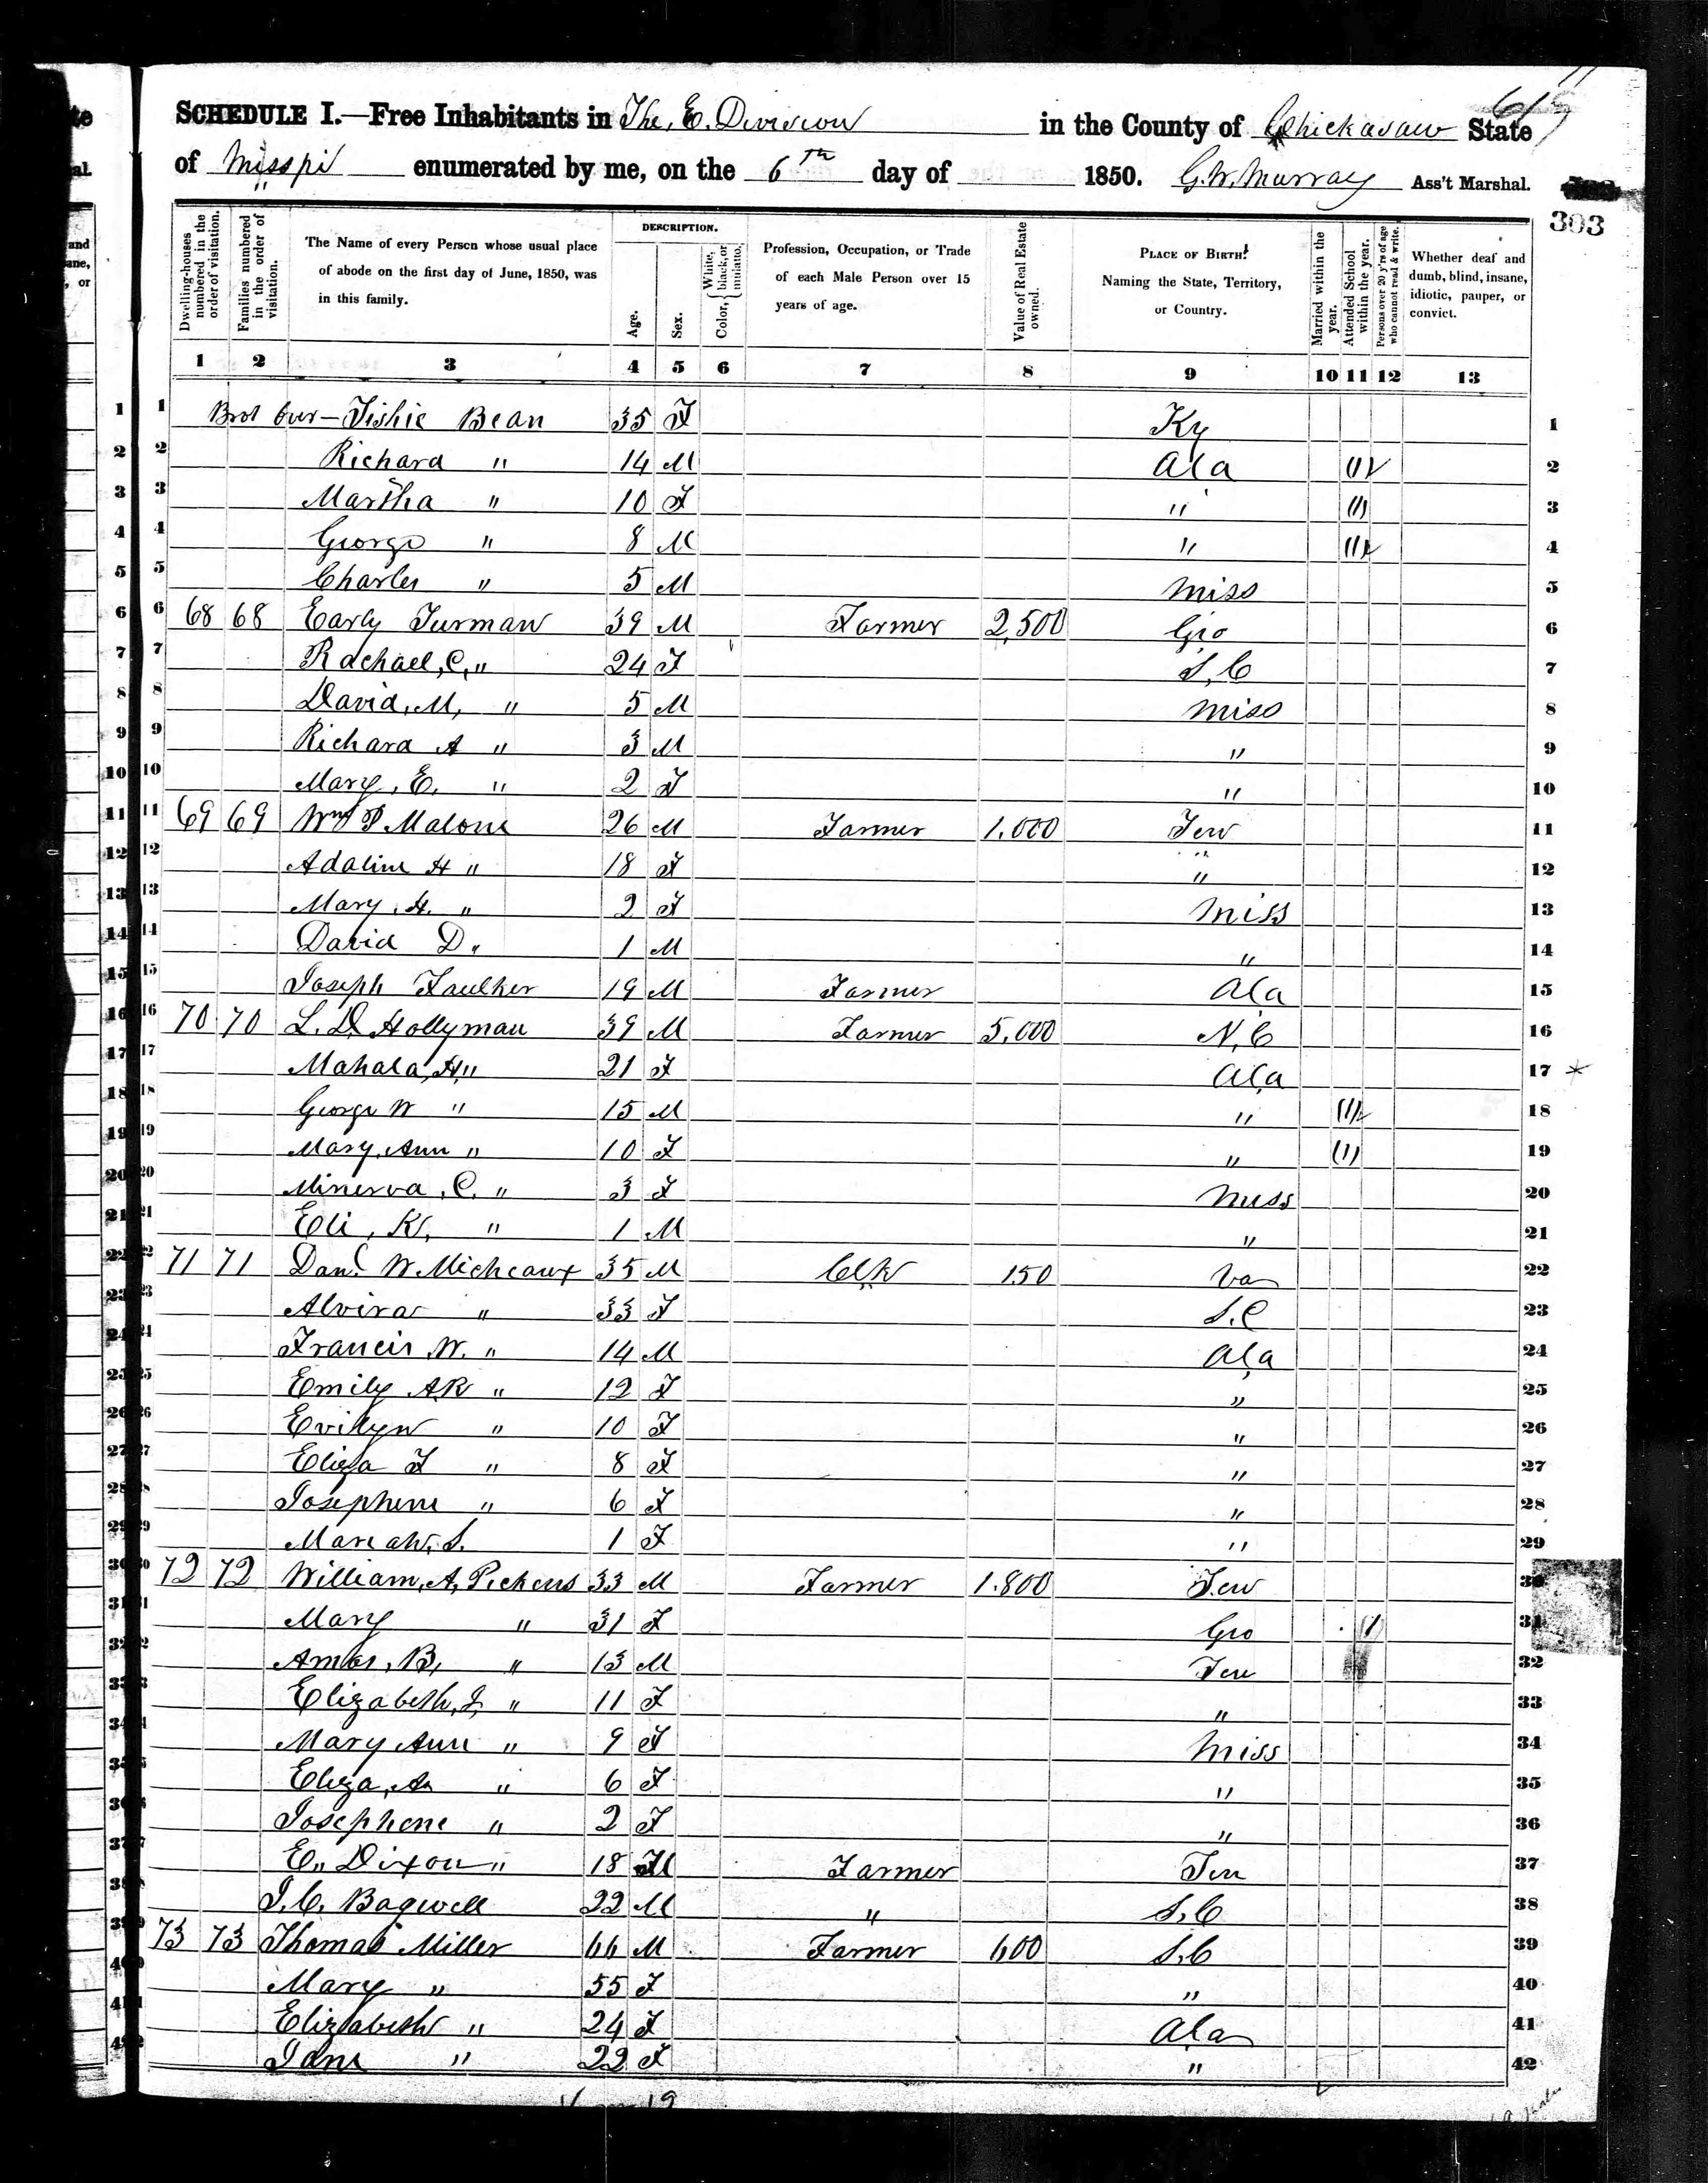 SCHEDULE I.—Free Inhabitants in The, E. Division in the County of Chickasaw State
of Misspi enumerated by me, on the 6th day of 1850. G. W. Murray Ass't Marshal.
303
Dwelling-houses numbered in the order of visitation.
Families numbered in the order of visitation.
The Name of every Person whose usual place of abode on the first day of June, 1850, was in this family.
DESCRIPTION.
Age.
Sex.
Color, { White, black, or mulatto.
Profession, Occupation, or Trade of each Male Person over 15 years of age.
Value of Real Estate owned.
PLACE OF BIRTH. Naming the State, Territory, or Country.
Married within the year.
Attended School within the year.
Persons over 20 y'rs of age who cannot read & write.
Whether deaf and dumb, blind, insane, idiotic, pauper, or convict.
1 2 3 4 5 6 7 8 9 10 11 12 13
1 Brot over— Tishie Bean 35 F Ky 1
2 Richard " 14 M Ala 1 2
3 Martha " 10 F " 1 3
4 George " 8 M " 1 4
5 Charles " 5 M Miss 5
6 68 68 Early Turman 39 M Farmer 2,500 Geo 6
7 Rachael, C, " 24 F S, C 7
8 David, M, " 5 M Miss 8
9 Richard A " 3 M " 9
10 Mary, E. " 2 F " 10
11 69 69 Wm P Malone 26 M Farmer 1,000 Ten 11
12 Adaline H " 18 F " 12
13 Mary, H. " 2 F Miss 13
14 David D " 1 M " 14
15 Joseph Faulker 19 M Farmer Ala 15
16 70 70 L. D Hollyman 39 M Farmer 5,000 N, C 16
17 Mahala, H, " 21 F Ala 17 *
18 George W " 15 M " 1 18
19 Mary, Ann " 10 F " 1 19
20 Minerva, C. " 3 F Miss 20
21 Eli, K, " 1 M " 21
22 71 71 Danl W. Micheaux 35 M Clk 150 Va 22
23 Alvira " 33 F S. C 23
24 Francis W. " 14 M Ala 24
25 Emily AR " 12 F " 25
26 Evilyn " 10 F " 26
27 Eliza F " 8 F " 27
28 Josephine " 6 F " 28
29 Mariah, S. 1 F " 29
30 72 72 William, A, Pickens 33 M Farmer 1.800 Ten 30
31 Mary " 31 F Geo 1 31
32 Amos, B, " 13 M Ten 32
33 Elizabeth, J, " 11 F " 33
34 Mary Ann " 9 F Miss 34
35 Eliza, A " 6 F " 35
36 Josephene " 2 F " 36
37 E,, Dixon " 18 M Farmer Ten 37
38 J. C. Bagwell 22 M " S, C 38
39 73 73 Thomas Miller 66 M Farmer 600 S. C 39
40 Mary " 55 F " 40
41 Elizabeth " 24 F Ala 41
42 Jane " 22 F " 42